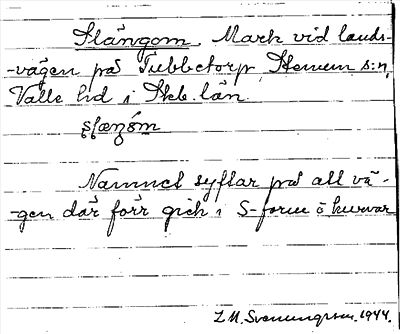 Slängom. Mark vid lands-
-vägen på Tubbetorp, Stenum s:n,
Valle hd i Skb. län.
Namnet syftar på att vä-
-gen där förr gick i S-form ö kurvor
Svenungsson. 1944.